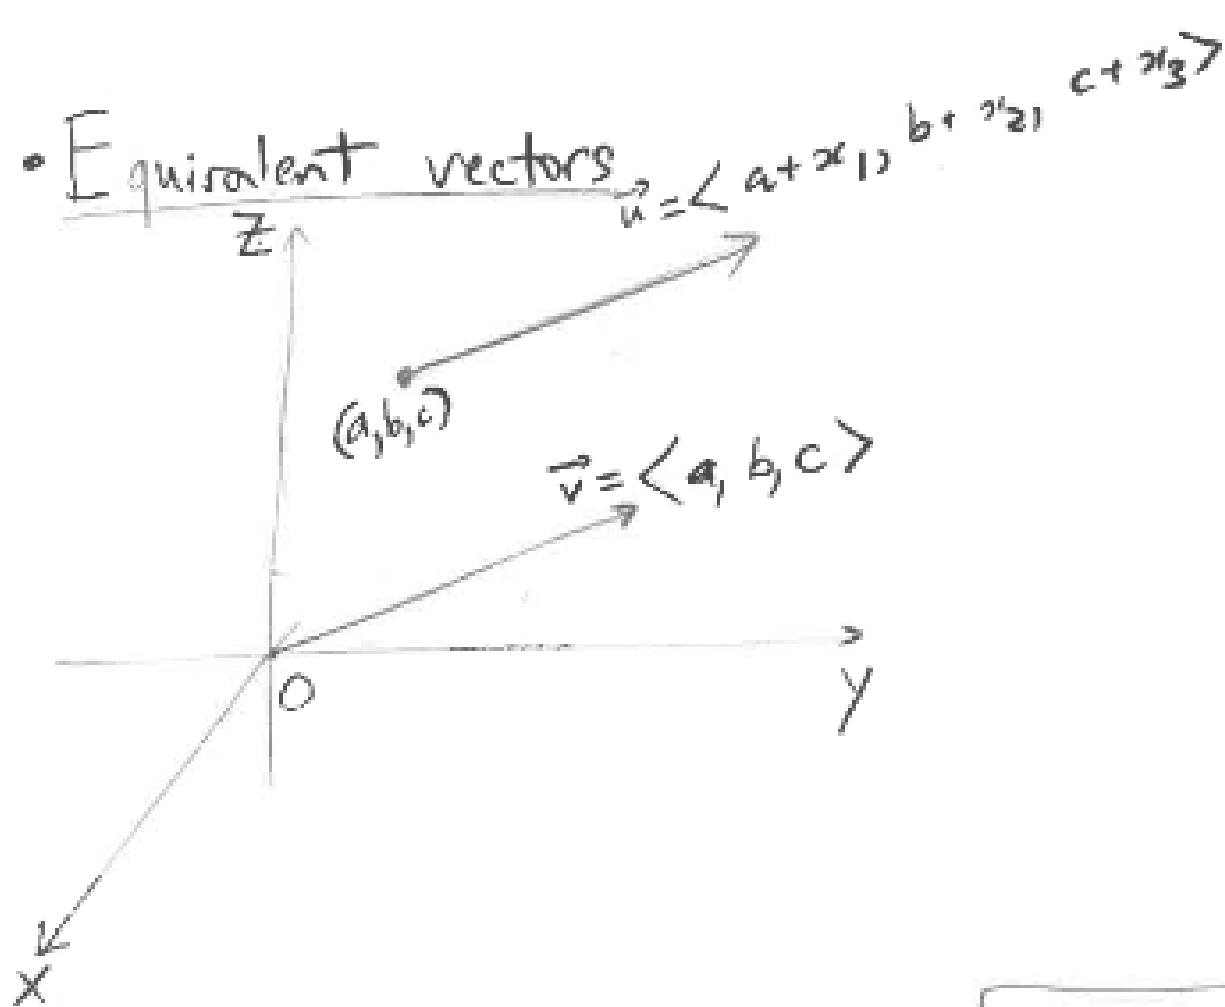 • Equivalent vectors
u⃗ = < a + x₁, b + x₂, c + x₃ >
Z
(a, b, c)
v⃗ = < a, b, c >
O
y
x